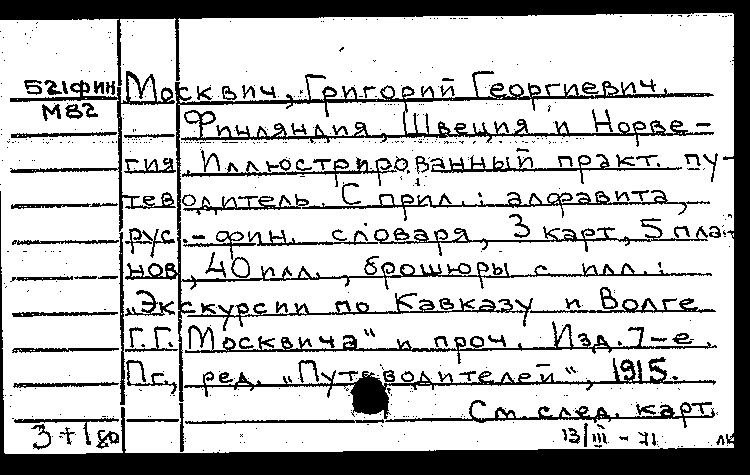 521фин Москвич, Григорий Георгиевич.
М82
Финляндия, Швеция и Норве-
гия. Иллюстрированный практ. пу-
теводитель. С прил.: алфавита,
рус.-фин. словаря, 3 карт, 5 пла-
нов, 40 илл., брошюры с илл.:
„Экскурсии по Кавказу и Волге
Г.Г. Москвича" и проч. Изд. 7-е.
Пг., ред. „Путеводителей", 1915.
См. след. карт.
13/III - 71